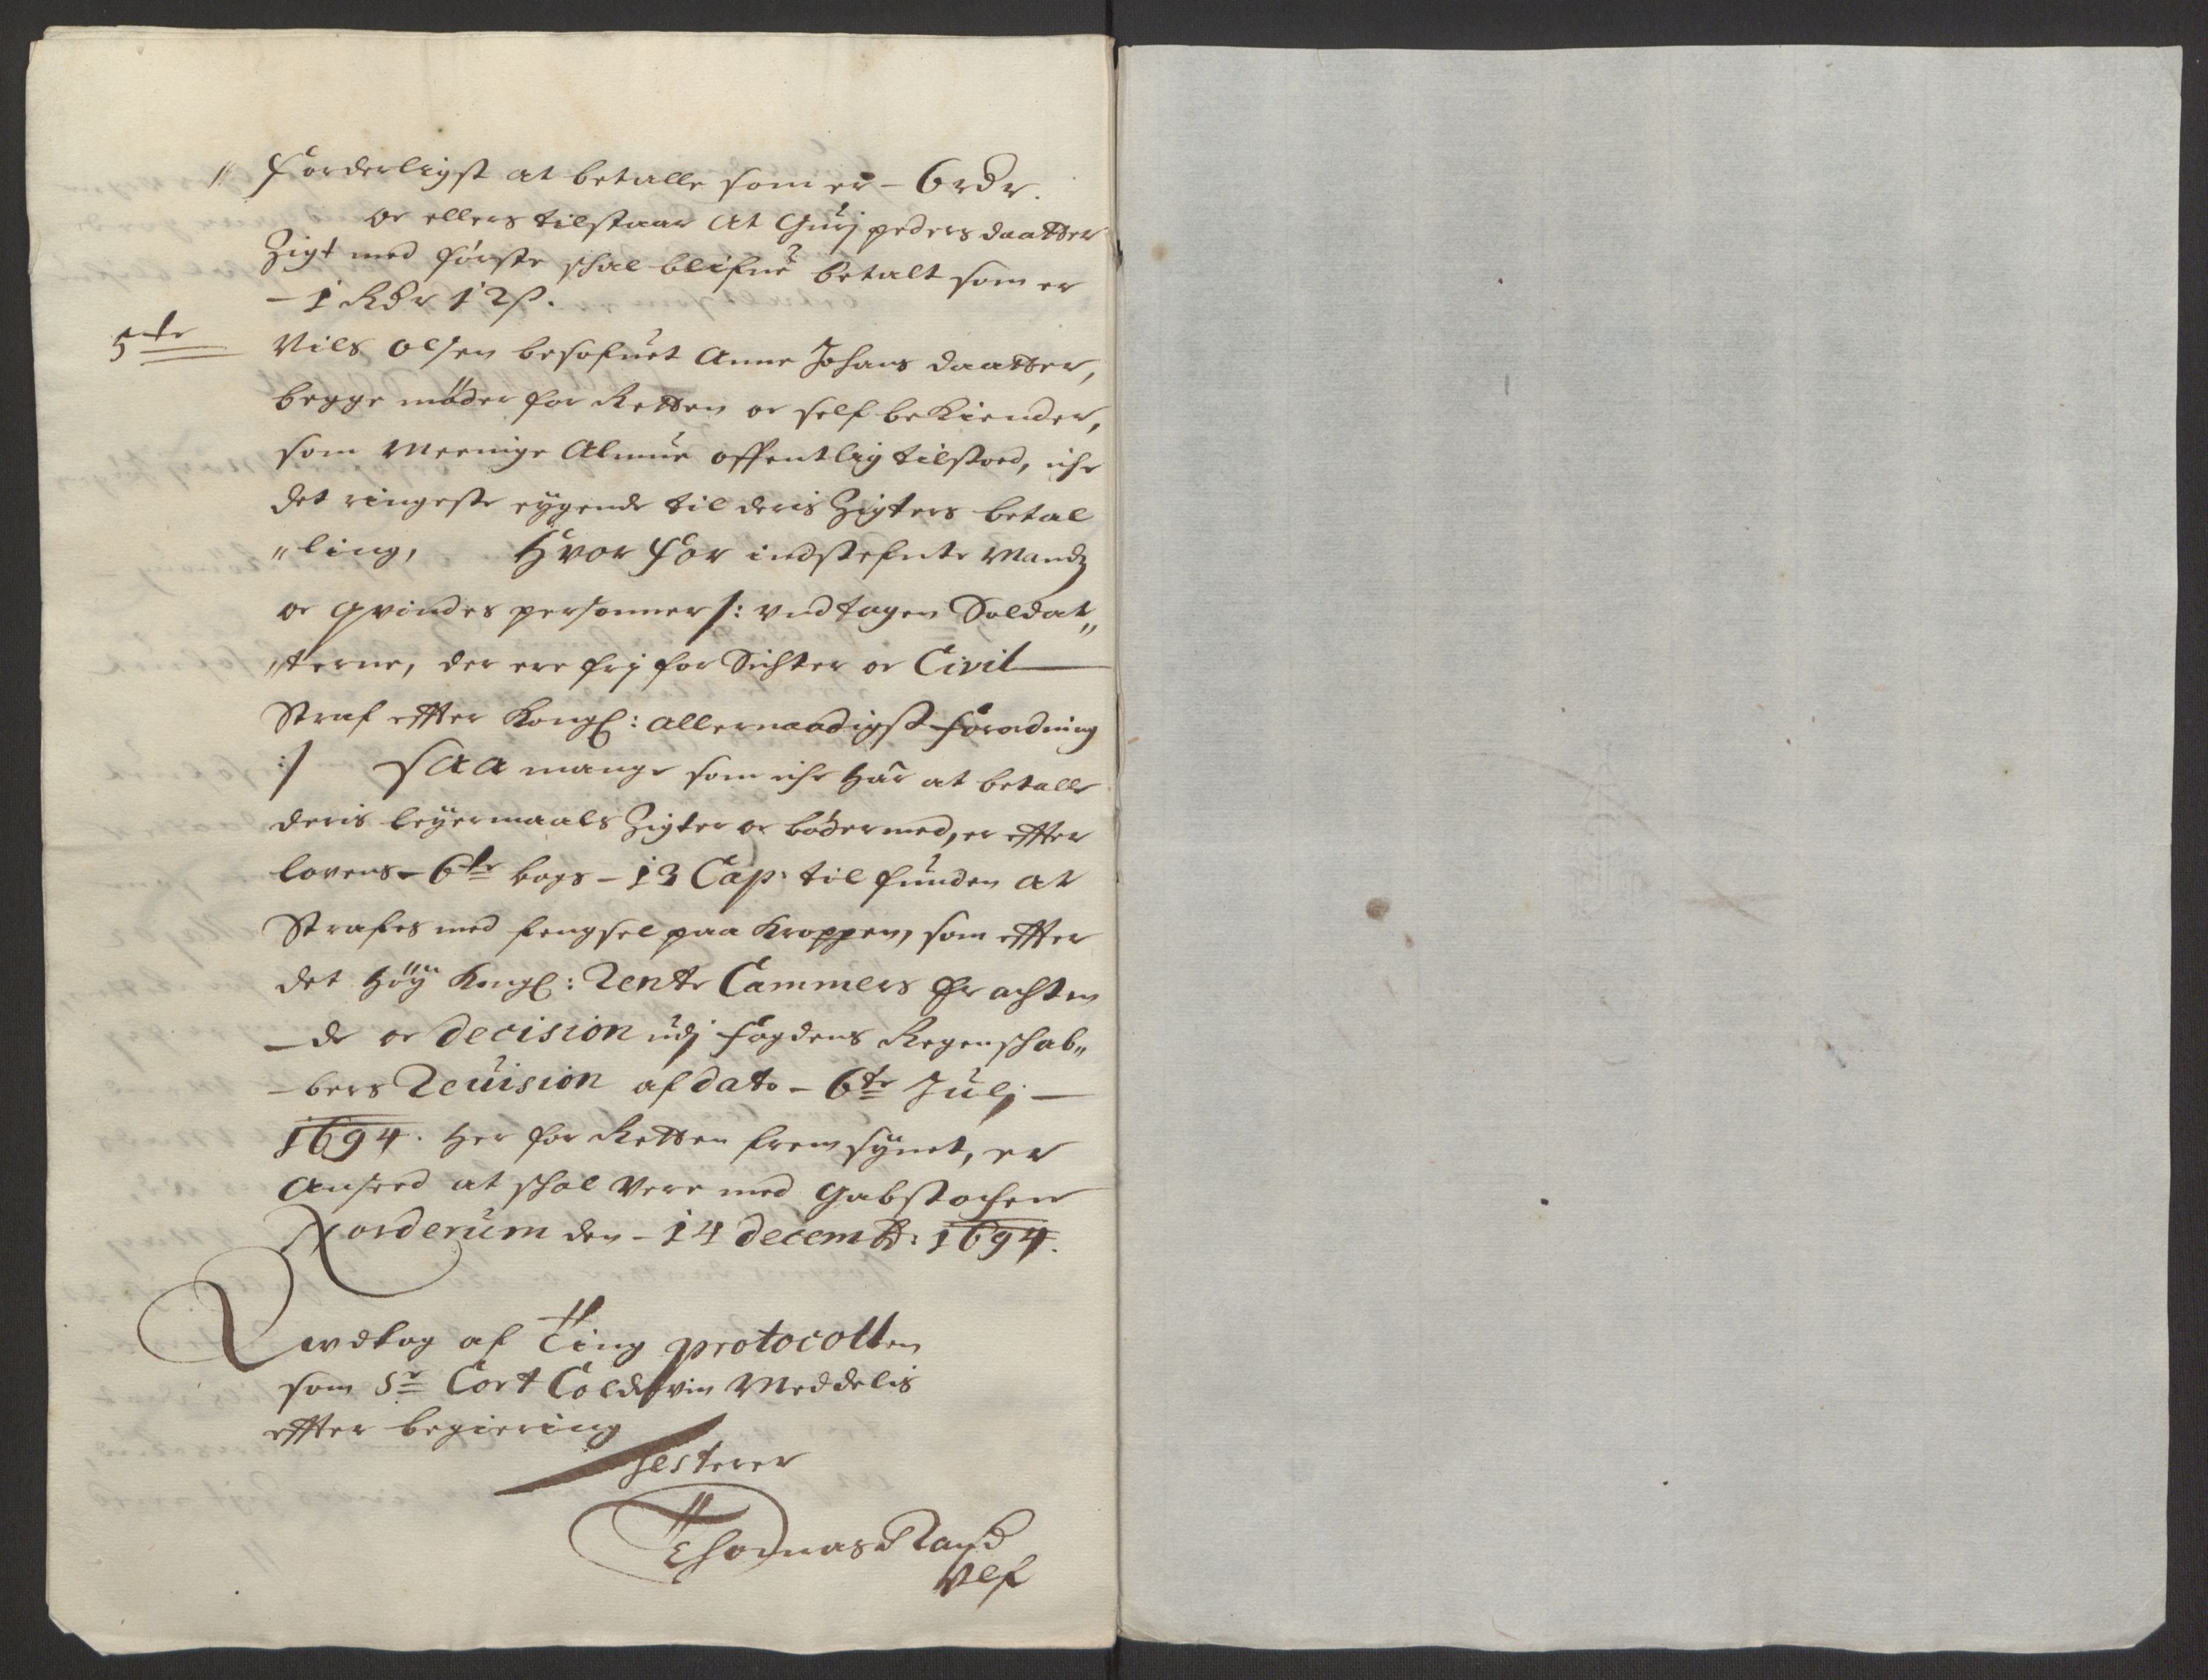 " Forderligst at betalle som er – 6 rdr.
oc ellers tilstaar at Gurj peders daatter
Zigt med første schal blifue betalt som er
– 1 Rdr 12 s.
5te Nils Olsen besofuet Anne Johans daatter,
begge møder for Retten oc self bekiender,
som Meenige Almue offentlig tilstoed, iche
det ringeste eyende til deris Zigters betal
"ling, Hvor For indstefnte Mands
oc qvindes personner /: vndtagen Soldat„
"terne, der ere frj for Sichter oc Civil
Straf effter Kongl: allernaadigst forordning
:/ saa mange som iche har at betalle
deris leyermaals Zigter oc bøder med, er effter
lovens – 6te bogs – 13 Cap: til funden at
Strafes med fengsel paa Kroppen, som effter
det Høy Kongl: Rente Cammers Er achten
– de oc Decision udj fogdens Regenschab„
– bers Reuision af dato – 6te Julj –
1694. Her for Retten frem synet, er
anseed at schal vere med Gabstochen
Norderum den – 14 decembr: 1694.
Vdtog af Ting protocollen
som Sr Cort Coldevin Meddelis
effter begiering
Testerer
Thomas